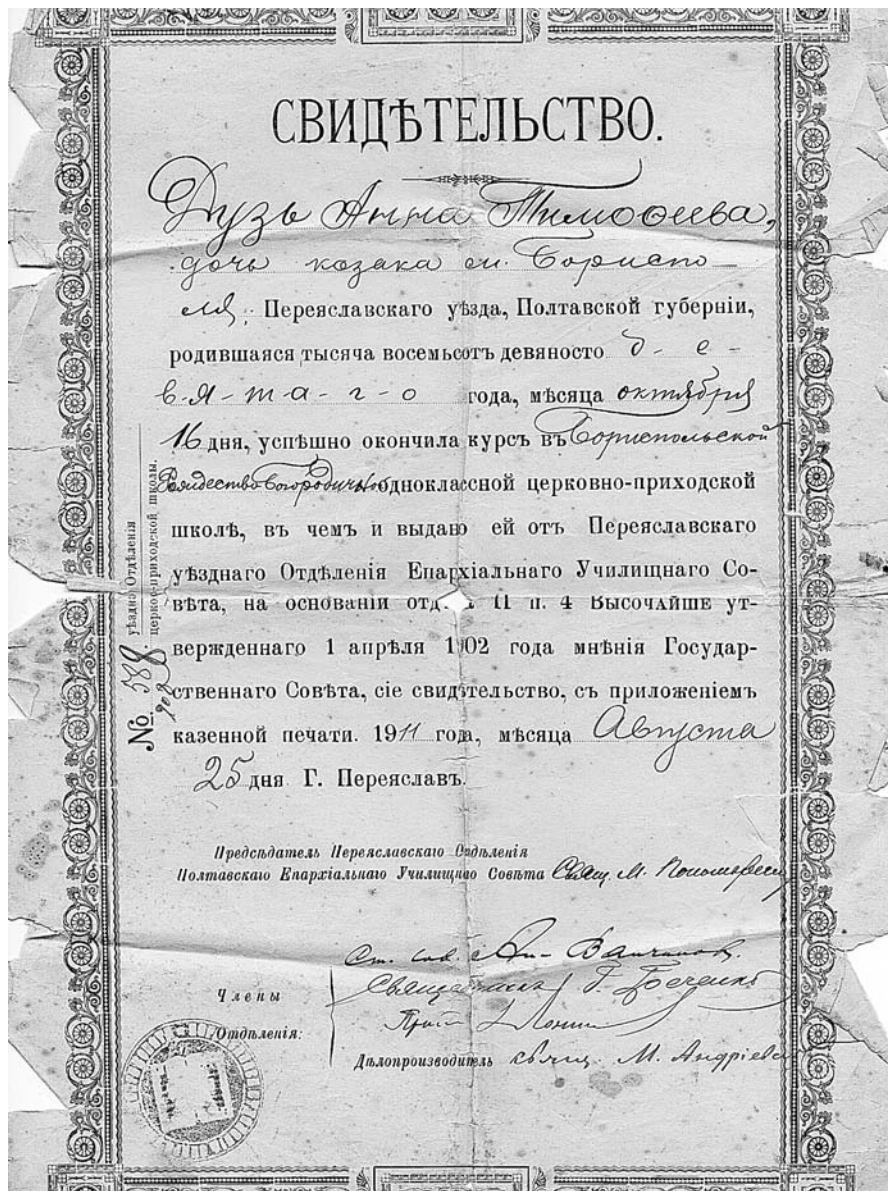 СВИДѢТЕЛЬСТВО.
Дузь Анна Тимоѳеева,
дочь козака м. Бориспо
ля, Переяславскаго уѣзда, Полтавской губерніи,
родившаяся тысяча восемьсотъ девяносто д - е -
в-я-т-а-г-о года, мѣсяца октября
16 дня, успѣшно окончила курсъ въ Бориспольской
Рождество Богородичной одноклассной церковно-приходской
школѣ, въ чемъ и выдано ей отъ Переяславскаго
уѣзднаго Отдѣленія Епархіальнаго Училищнаго Со-
вѣта, на основаніи отдѣла II п. 4 ВЫСОЧАЙШЕ ут-
вержденнаго 1 апрѣля 1902 года мнѣнія Государ-
ственнаго Совѣта, сіе свидѣтельство, съ приложеніемъ
казенной печати. 1911 года, мѣсяца Августа
25 дня Г. Переяславъ.
№ 588
908
уѣздно Отдѣленія
церкос-приходской школы.
Предсѣдатель Переяславскаго Отдѣленія
Полтавскаго Епархіальнаго Училищнаго Совѣта Свящ. М.
Ст. сов.
Члены
Отдѣленія:
Священникъ Г.
Дѣлопроизводитель свящ. М. Андріевъ